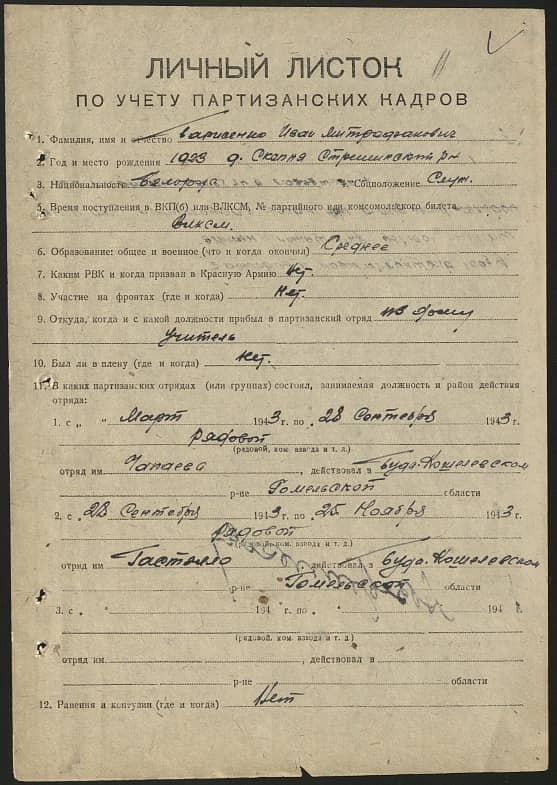 ЛИЧНЫЙ ЛИСТОК
ПО УЧЕТУ ПАРТИЗАНСКИХ КАДРОВ
1. Фамилия, имя и отчество Иван Митрофанович
2. Год и место рождения 1923 д. Стрешинский р-н
3. Национальность Белорус 4. Соцположение Служ.
5. Время поступления в ВКП(б) или ВЛКСМ, № партийного или комсомольского билета
Влксм.
6. Образование: общее и военное (что и когда окончил) Среднее
7. Каким РВК и когда призван в Красную Армию Нет.
8. Участие на фронтах (где и когда) Нет.
9. Откуда, когда и с какой должности прибыл в партизанский отряд из дому
Учитель
10. Был ли в плену (где и когда) Нет.
11. В каких партизанских отрядах (или группах) состоял, занимаемая должность и район действия
отряда:
1. с „ “ Март 1943 г. по 28 Сентября 1943 г.
Рядовой
(рядовой, ком. взвода и т. д.)
отряд им. Чапаева, действовал в Буда-Кошелевском
р-не Гомельской области
2. с 28 Сентября 1943 г. по 25 Ноября 1943 г.
Рядовой
(рядовой, ком. взвода и т. д.)
отряд им. Гастелло действовал в Буда-Кошелевском
р-не Гомельской области
3. с 194 г. по 194 г.
(рядовой, ком. взвода и т. д.)
отряд им. , действовал в
р-не области
12. Ранения и контузии (где и когда) Нет